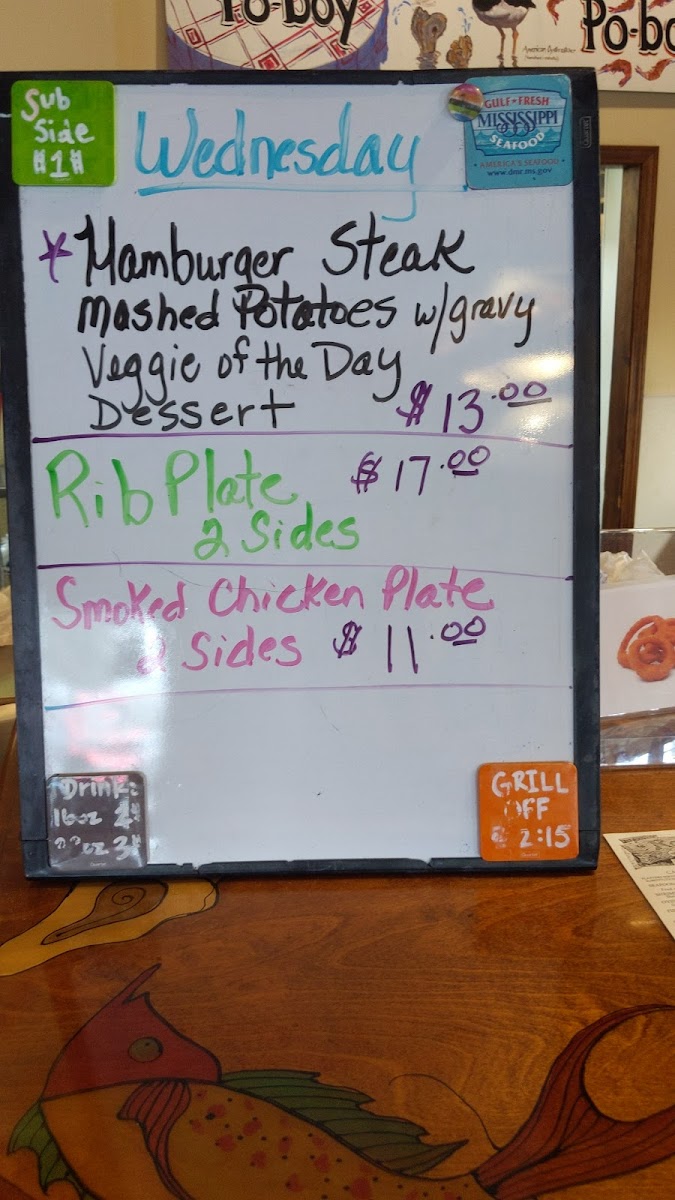 Po-boy
American Oystercatcher
Po-bo
Sub
Side
#1#
Wednesday
GULF FRESH
MISSISSIPPI
SEAFOOD
AMERICA'S SEAFOOD
www.dmr.ms.gov
* Hamburger Steak
mashed Potatoes w/gravy
Veggie of the Day
Dessert $13.00
Rib Plate $17.00
2 Sides
Smoked Chicken Plate
2 Sides $11.00
Drink
16oz
oz
GRILL
OFF
2:15